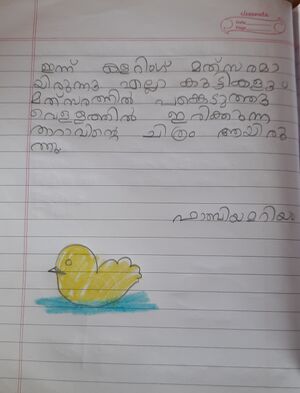 classmate
Date
Page
ഇന്ന് കളറിംഗ് മത്സരമാ
യിരുന്നു എല്ലാ കുട്ടികളും
മത്സരത്തിൽ പങ്കെടുത്തു
വെള്ളത്തിൽ ഇരിക്കുന്ന
താറാവിന്റെ ചിത്രം ആയിരു
ന്നു.
ഫാബിയ മറിയം